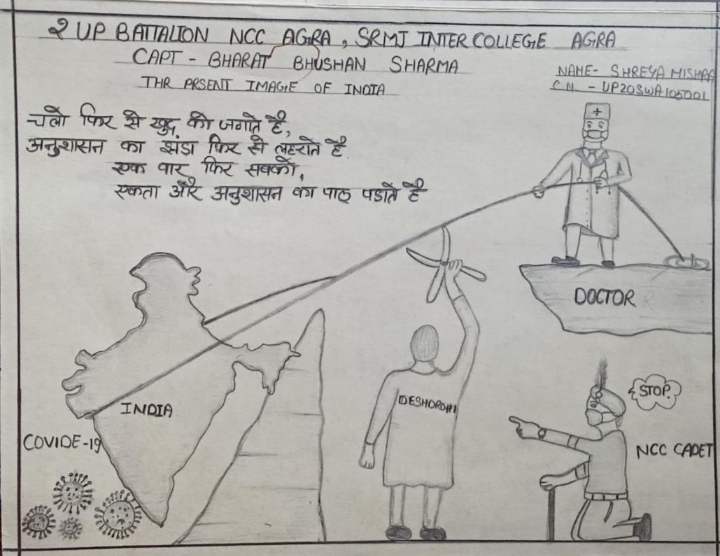 2 UP BATTALION NCC AGRA, SRMJ INTER COLLEGE AGRA
CAPT - BHARAT BHUSHAN SHARMA
THR PRSENT IMAGE OF INDIA
NAME- SHREYA MISHRA
C.N. - UP20SWA105001
चलो फिर से खुद को जगाते है,
अनुशासन का झंडा फिर से लहराते है
एक वार फिर सबको,
एकता और अनुशासन का पाठ पडाते है
DOCTOR
DESHORDHI
STOP
INDIA
NCC CADET
COVIDE-19